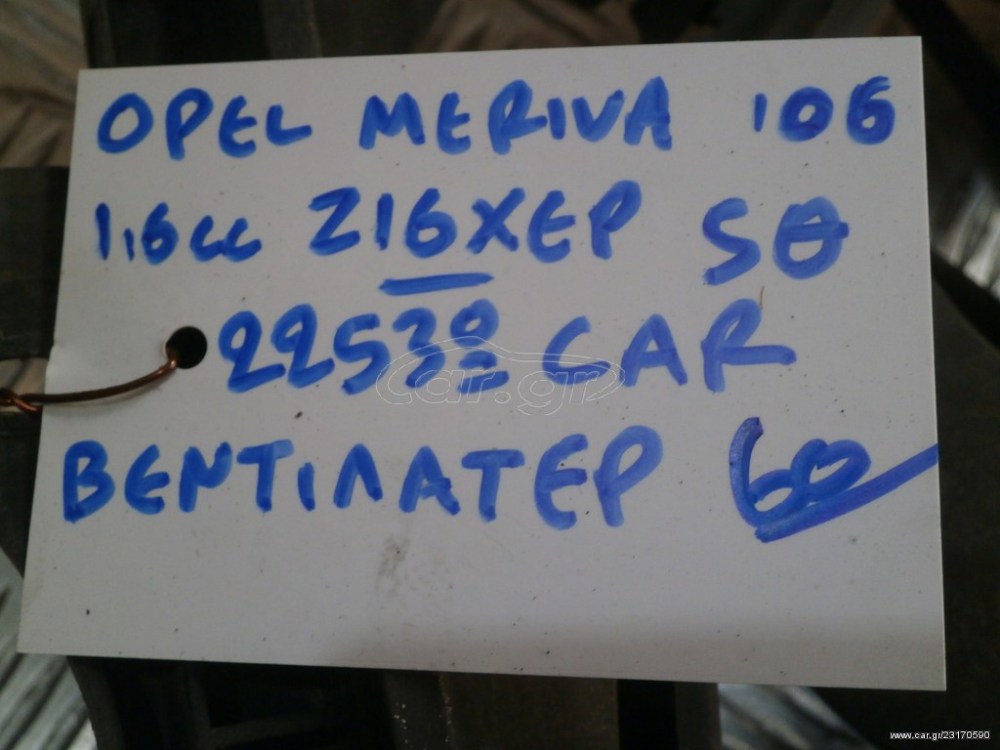 OPEL MERIVA '06
1,6cc Z16XEP 5Θ
22532 CAR
ΒΕΝΤΙΛΑΤΕΡ 60
car.gr
www.car.gr/23170590